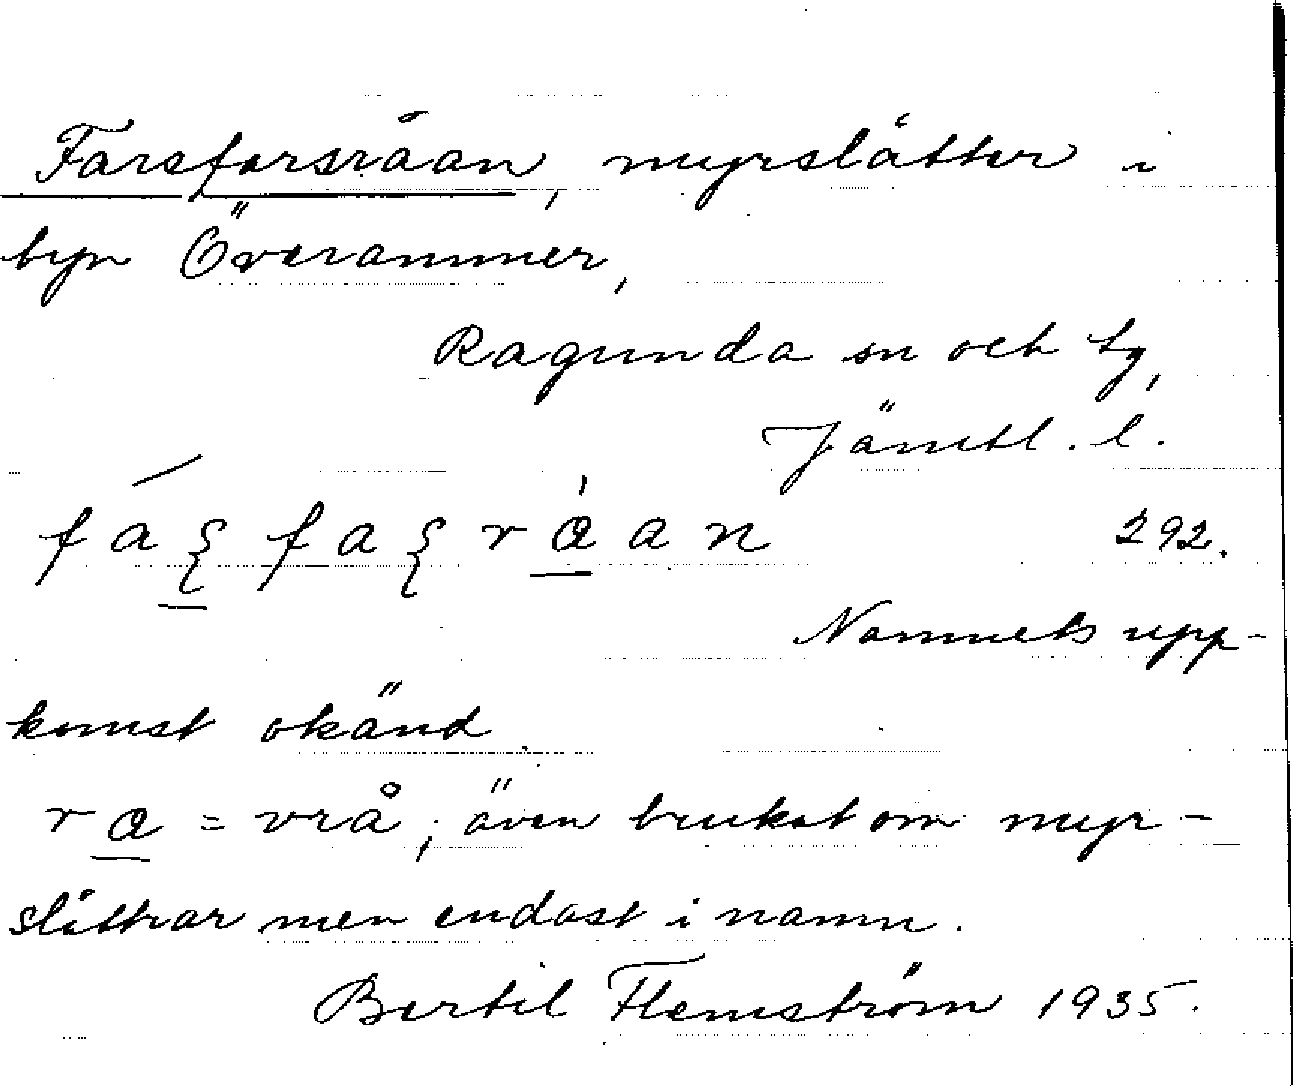 Farsfarsråan, myrslåtter i
byn Överammer,
Ragunda sn och tg,
Jämtl. l.
fa fa råan 292.
Namnets upp-
komst okänd.
ra = vrå; även brukat om myr-
slåttrar men endast i namn.
Bertil Flemström 1935.